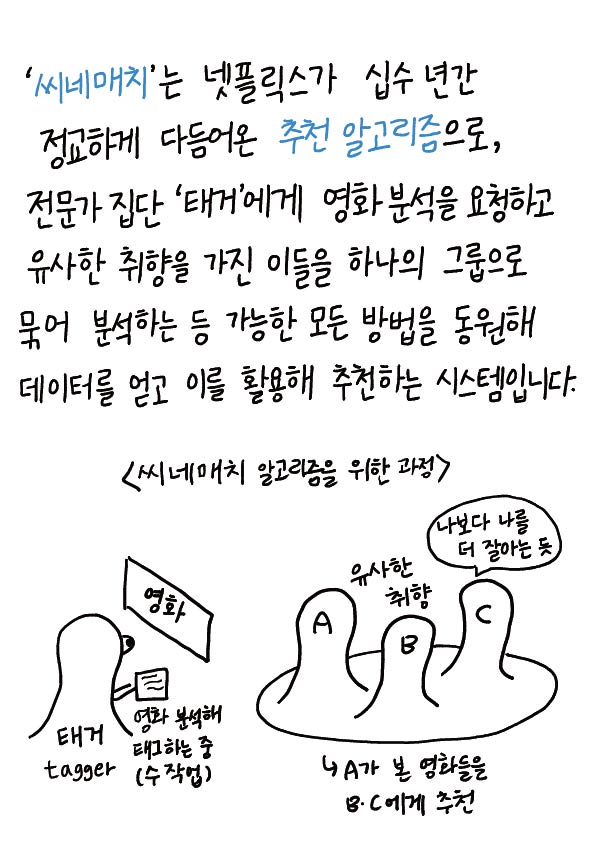 '씨네매치'는 넷플릭스가 십수 년간
정교하게 다듬어온 추천 알고리즘으로,
전문가 집단 '태거'에게 영화 분석을 요청하고
유사한 취향을 가진 이들을 하나의 그룹으로
묶어 분석하는 등 가능한 모든 방법을 동원해
데이터를 얻고 이를 활용해 추천하는 시스템입니다.
<씨네매치 알고리즘을 위한 과정>
영화
태거
tagger
영화 분석해
태그하는 중
(수작업)
나보다 나를
더 잘아는 듯
유사한
취향
A
B
C
↳ A가 본 영화들을
B·C에게 추천